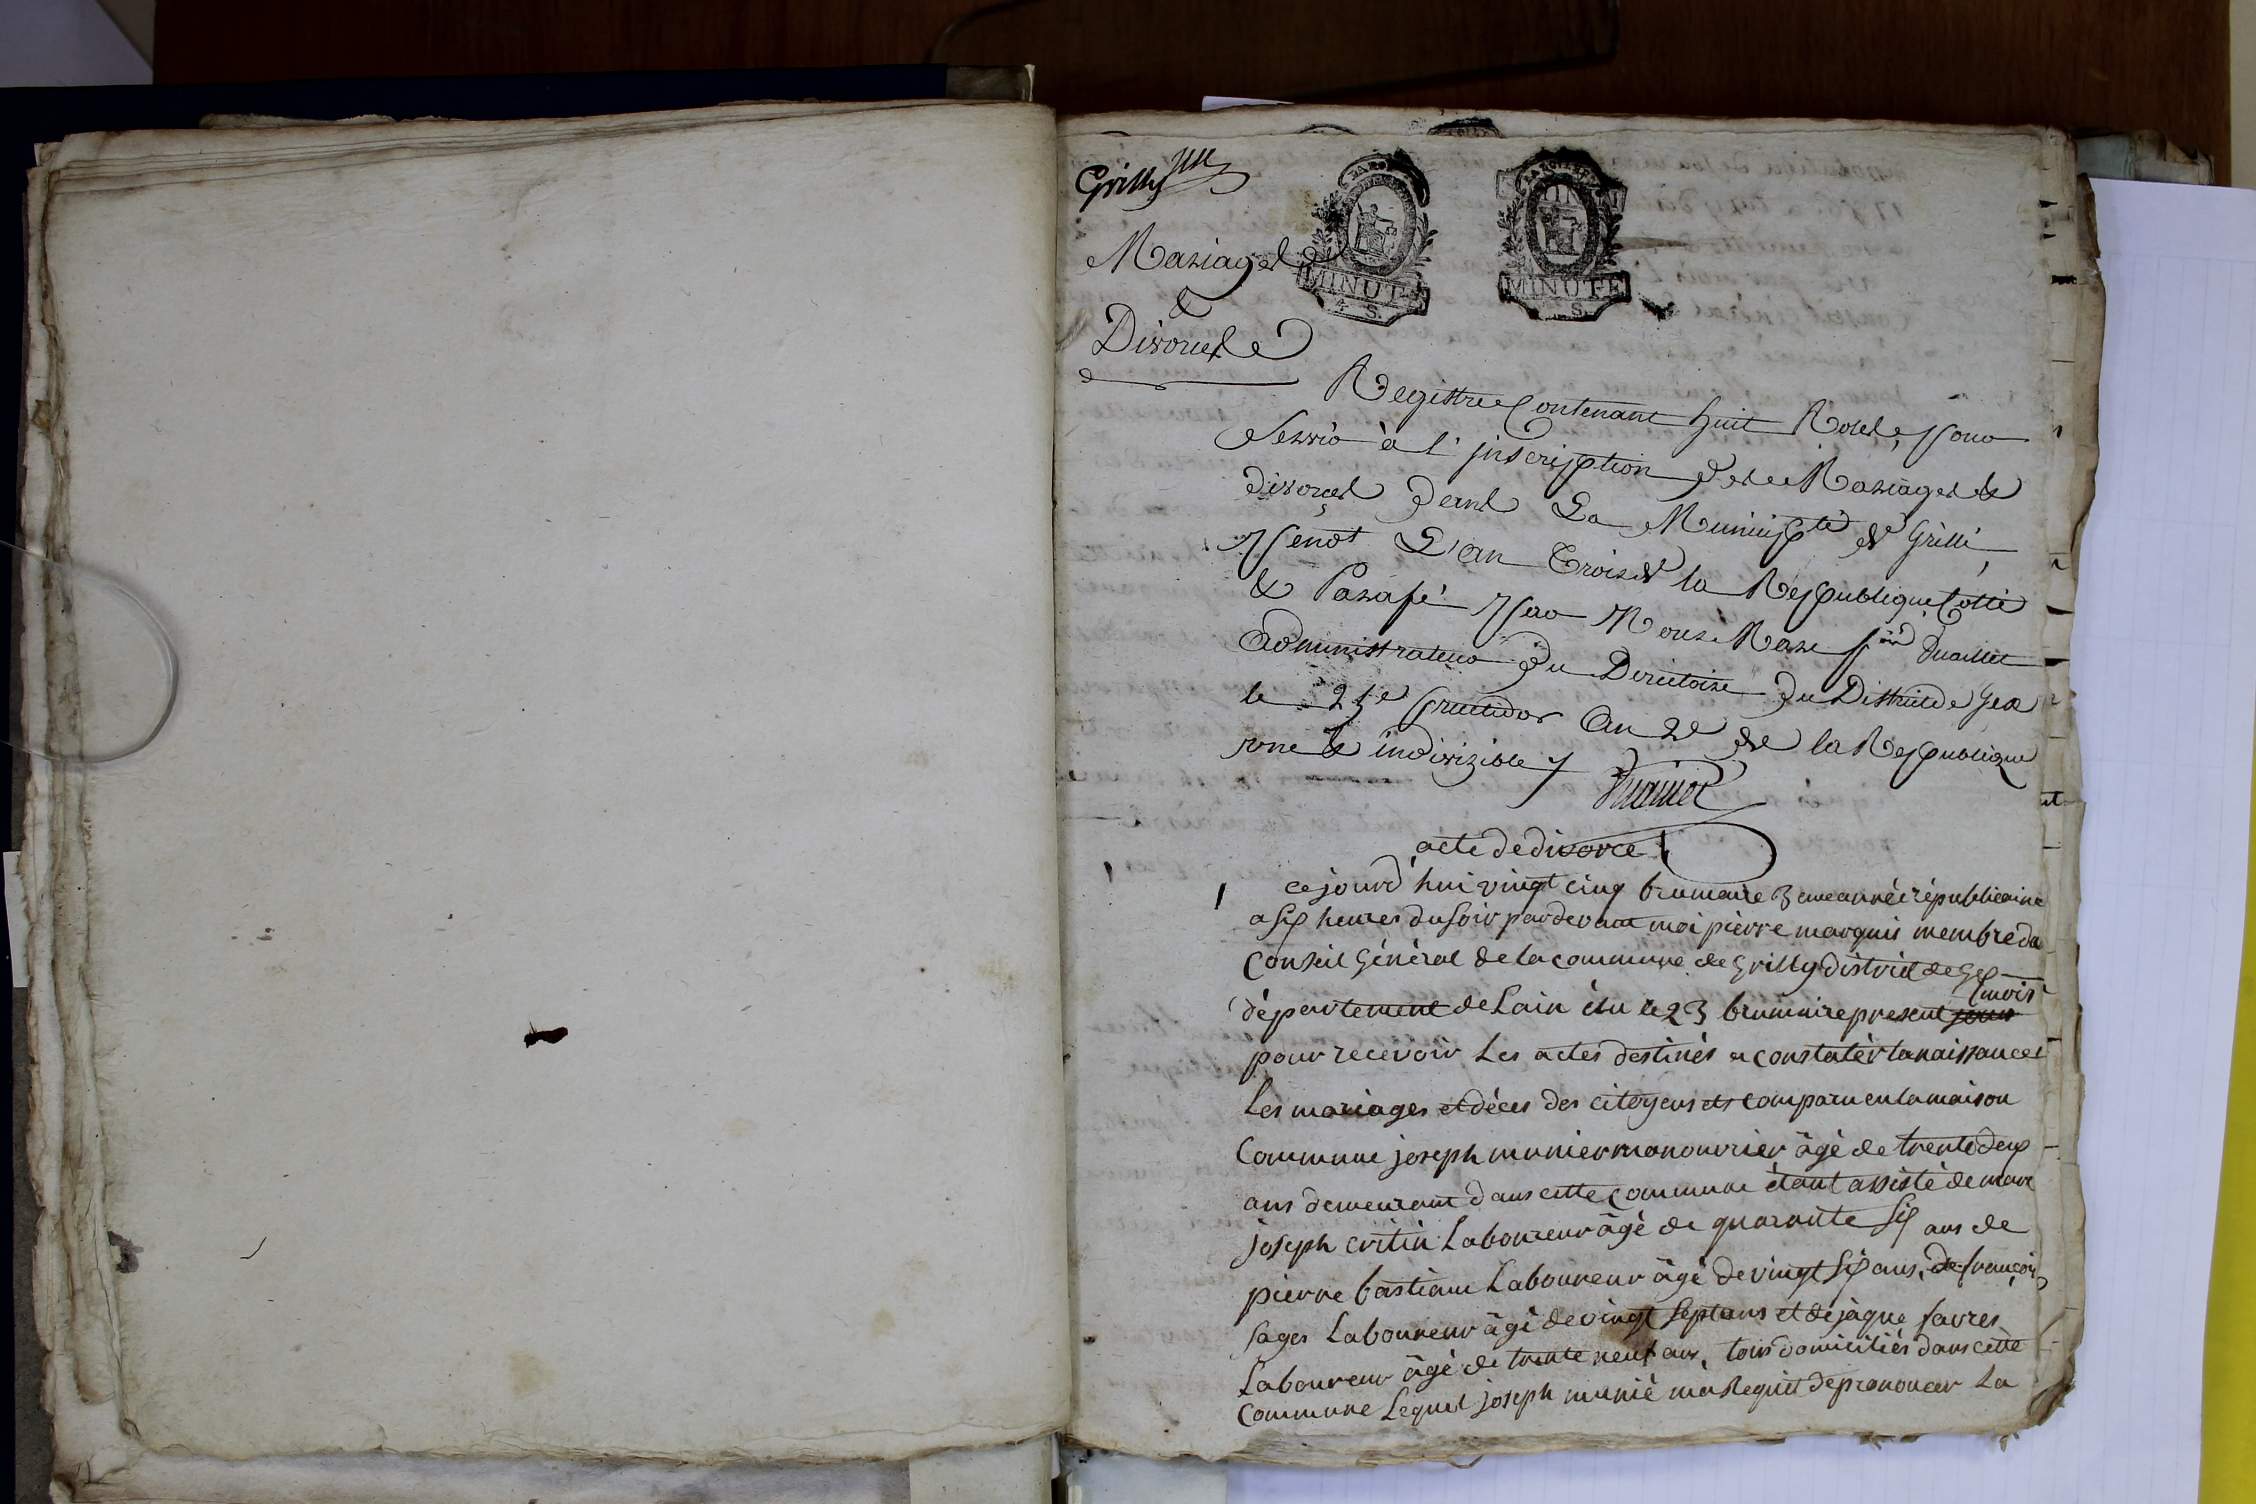 Grilly
Mariages
&
Divorces
MINUTE
4. S.
MINUTE
S.
Registre Contenant huit Roles, pour
Servir à l'inscription des Mariages &
divorces dans La Municipté de Grilli
pendt L'an Trois de la Republique Cotté
& Parafé par Nous Marc
Administrateur du Directoire du District de Gex
le fructidor An 2e de la Republique
une & indivizible
acte de divorce
1 ce jourd'hui vingt cinq brumaire 3eme année républicaine
a six heures du soir pardevant moi pierre marquis membre du
Conseil Général de la commune de Grilly district de Gex
département de Lain élu le 23 brumaire present jour mois
pour recevoir Les actes destinés a constatér la naissances
Les mariages et déces des citoyens est comparu en la maison
Commune joseph munier manouvrier âgé de trente deux
ans demeurant dans cette commune étant assisté de marc
joseph critin Laboureur âgé de quarante six ans de
pierre bastian Laboureur âgé de vingt six ans, de françois
sages Laboureur âgé de vingt sept ans et de jaque favres
Laboureur âgé de trente neuf ans, tous domiciliés dans cette
Commune Lequel joseph munié ma Requit de prononcer La